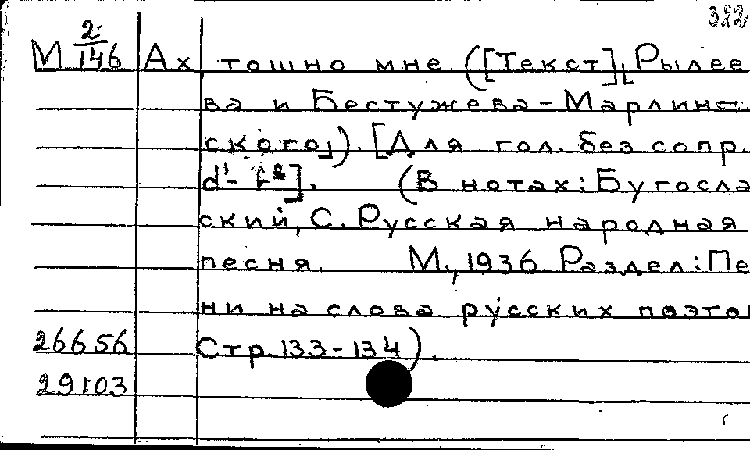 322
М 2/146 Ах, тошно мне ([Текст] Рылее
ва и Бестужева-Марлин
ского). [Для гол. без сопр.
d¹- f²]. (В нотах: Бугосла
ский, С. Русская народная
песня. М., 1936 Раздел: Пе
ни на слова русских поэто
26656 Стр. 133-134).
29103